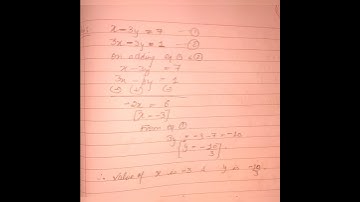 x - 3y = 7 — ①
3x - 3y = 1 — ②
on adding eq ① & ②
x - 3y = 7
3x - 3y = 1
(-) (+) (-)
-2x = 6
[x = -3]
From eq ①
3y = -3 - 7 = -10
[y = -10/3].
∴ Value of x is -3 & y is -10/3.